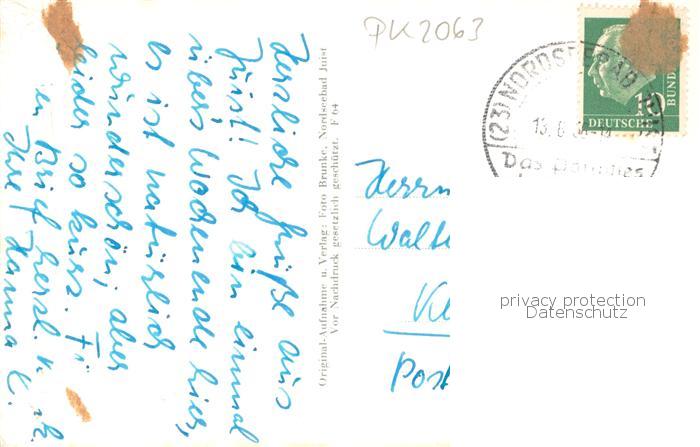 Herzliche Grüße aus
Juist! Ich bin einmal
übers Wochenende hier,
es ist natürlich
wunderschön, aber
leider so kurz. Fr
en Brief herzl.
Ihre Hanna L.
Original-Aufnahme u. Verlag: Foto Brunke, Nordseebad Juist
Vor Nachdruck gesetzlich geschützt. F 64
PK2063
(23) NORDSEEBAD
13. 6.
Das
10
DEUTSCHE
BUND
Herrn
Walt
Post
privacy protection
Datenschutz